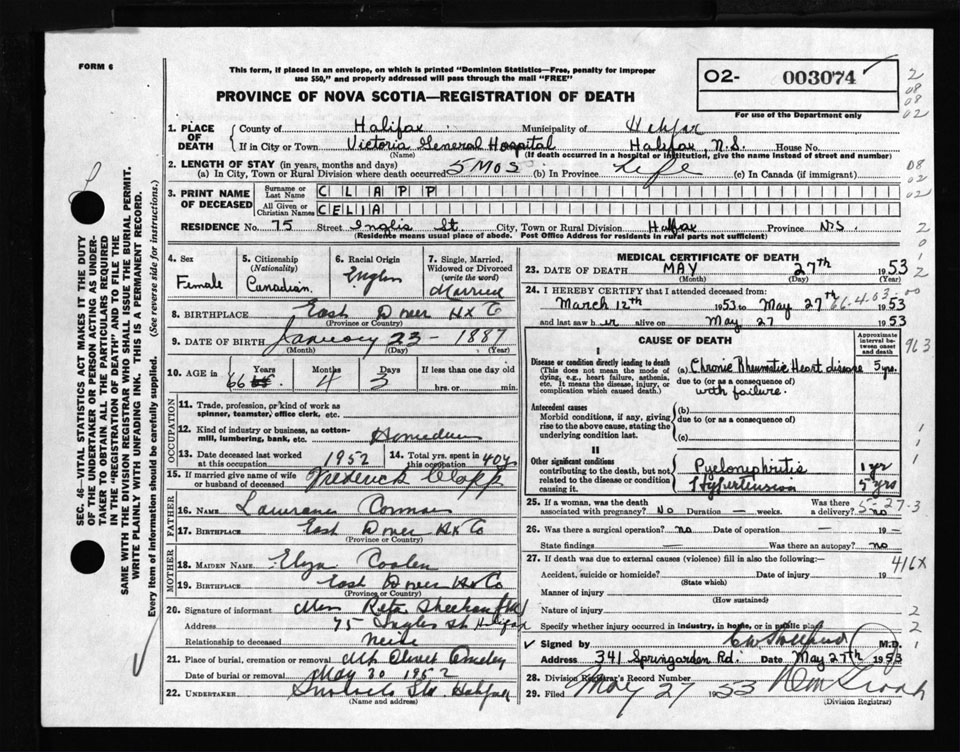 FORM 6
This form, if placed in an envelope, on which is printed "Dominion Statistics—Free, penalty for improper
use $50," and properly addressed will pass through the mail "FREE"
PROVINCE OF NOVA SCOTIA—REGISTRATION OF DEATH
O2- 003074
For use of the Department only
2
08
08
02
1. PLACE OF DEATH
County of Halifax Municipality of Halifax
If in City or Town Victoria General Hospital Halifax, N.S. House No.
(Name) (If death occurred in a hospital or institution, give the name instead of street and number)
2. LENGTH OF STAY (in years, months and days)
(a) In City, Town or Rural Division where death occurred 5 MOS (b) In Province Life (c) In Canada (if immigrant)
08
02
02
3. PRINT NAME OF DECEASED
Surname or Last Name CLAPP
All Given or Christian Names CELIA
RESIDENCE No. 75 Street Inglis St. City, Town or Rural Division Halifax Province N.S.
(Residence means usual place of abode. Post Office Address for residents in rural parts not sufficient)
SEC. 46—VITAL STATISTICS ACT MAKES IT THE DUTY
OF THE UNDERTAKER OR PERSON ACTING AS UNDER-
TAKER TO OBTAIN ALL THE PARTICULARS REQUIRED
IN THE "REGISTRATION OF DEATH" AND TO FILE THE
SAME WITH THE DIVISION REGISTRAR WHO SHALL ISSUE THE BURIAL PERMIT.
WRITE PLAINLY WITH UNFADING INK. THIS IS A PERMANENT RECORD.
Every item of information should be carefully supplied. (See reverse side for instructions.)
4. Sex
Female
5. Citizenship
(Nationality)
Canadian
6. Racial Origin
English
7. Single, Married,
Widowed or Divorced
(write the word)
Married
8. BIRTHPLACE East Dover Hx Co
(Province or Country)
9. DATE OF BIRTH January 23 - 1887
(Month) (Day) (Year)
10. AGE in Years Months Days If less than one day old
66 4 3 hrs. or min.
OCCUPATION
11. Trade, profession, or kind of work as
spinner, teamster, office clerk, etc.
12. Kind of industry or business, as cotton-
mill, lumbering, bank, etc.
13. Date deceased last worked
at this occupation 1952
14. Total yrs. spent in
this occupation 40 y
15. If married give name of wife
or husband of deceased Frederick Clapp
FATHER
16. NAME
17. BIRTHPLACE East Dover Hx Co
(Province or Country)
MOTHER
18. MAIDEN NAME
19. BIRTHPLACE East Dover Hx Co
(Province or Country)
20. Signature of informant Mrs Reta Sheehan
Address 75 Inglis St Halifax
Relationship to deceased Neice
21. Place of burial, cremation or removal Mt Olivet
Date of burial or removal May 30 1952
22. UNDERTAKER Snows Ltd. Halifax
(Name and address)
MEDICAL CERTIFICATE OF DEATH
23. DATE OF DEATH MAY 27th 1953
24. I HEREBY CERTIFY that I attended deceased from:
March 12th 1953 to May 27th 1953
66-4-03-00
and last saw her alive on May 27 1953
CAUSE OF DEATH
Approximate
interval be-
tween onset
and death
963
I
Disease or condition directly leading to death
(This does not mean the mode of
dying, e.g., heart failure, asthenia,
etc. It means the disease, injury, or
complication which caused death.)
(a) Chronic Rheumatic Heart disease 5 yrs.
due to (or as a consequence of)
with failure.
Antecedent causes
Morbid conditions, if any, giving
rise to the above cause, stating the
underlying condition last.
(b)
due to (or as a consequence of)
(c)
II
Other significant conditions
contributing to the death, but not
related to the disease or condition
causing it.
Pyelonephritis 1 yr
Hypertension 5 yrs
25. If a woman, was the death
associated with pregnancy? No Duration — weeks. Was there
a delivery? no
5-27-3
26. Was there a surgical operation? no Date of operation — 19
State findings — Was there an autopsy? no
27. If death was due to external causes (violence) fill in also the following:—
416X
Accident, suicide or homicide? Date of injury 19
(State which)
Manner of injury
(How sustained)
Nature of injury
Specify whether injury occurred in industry, in home, or in public place
Signed by M.D.
Address 341 Springarden Rd. Date May 27th 1953
28. Division Registrar's Record Number
29. Filed May 27 1953
(Division Registrar)